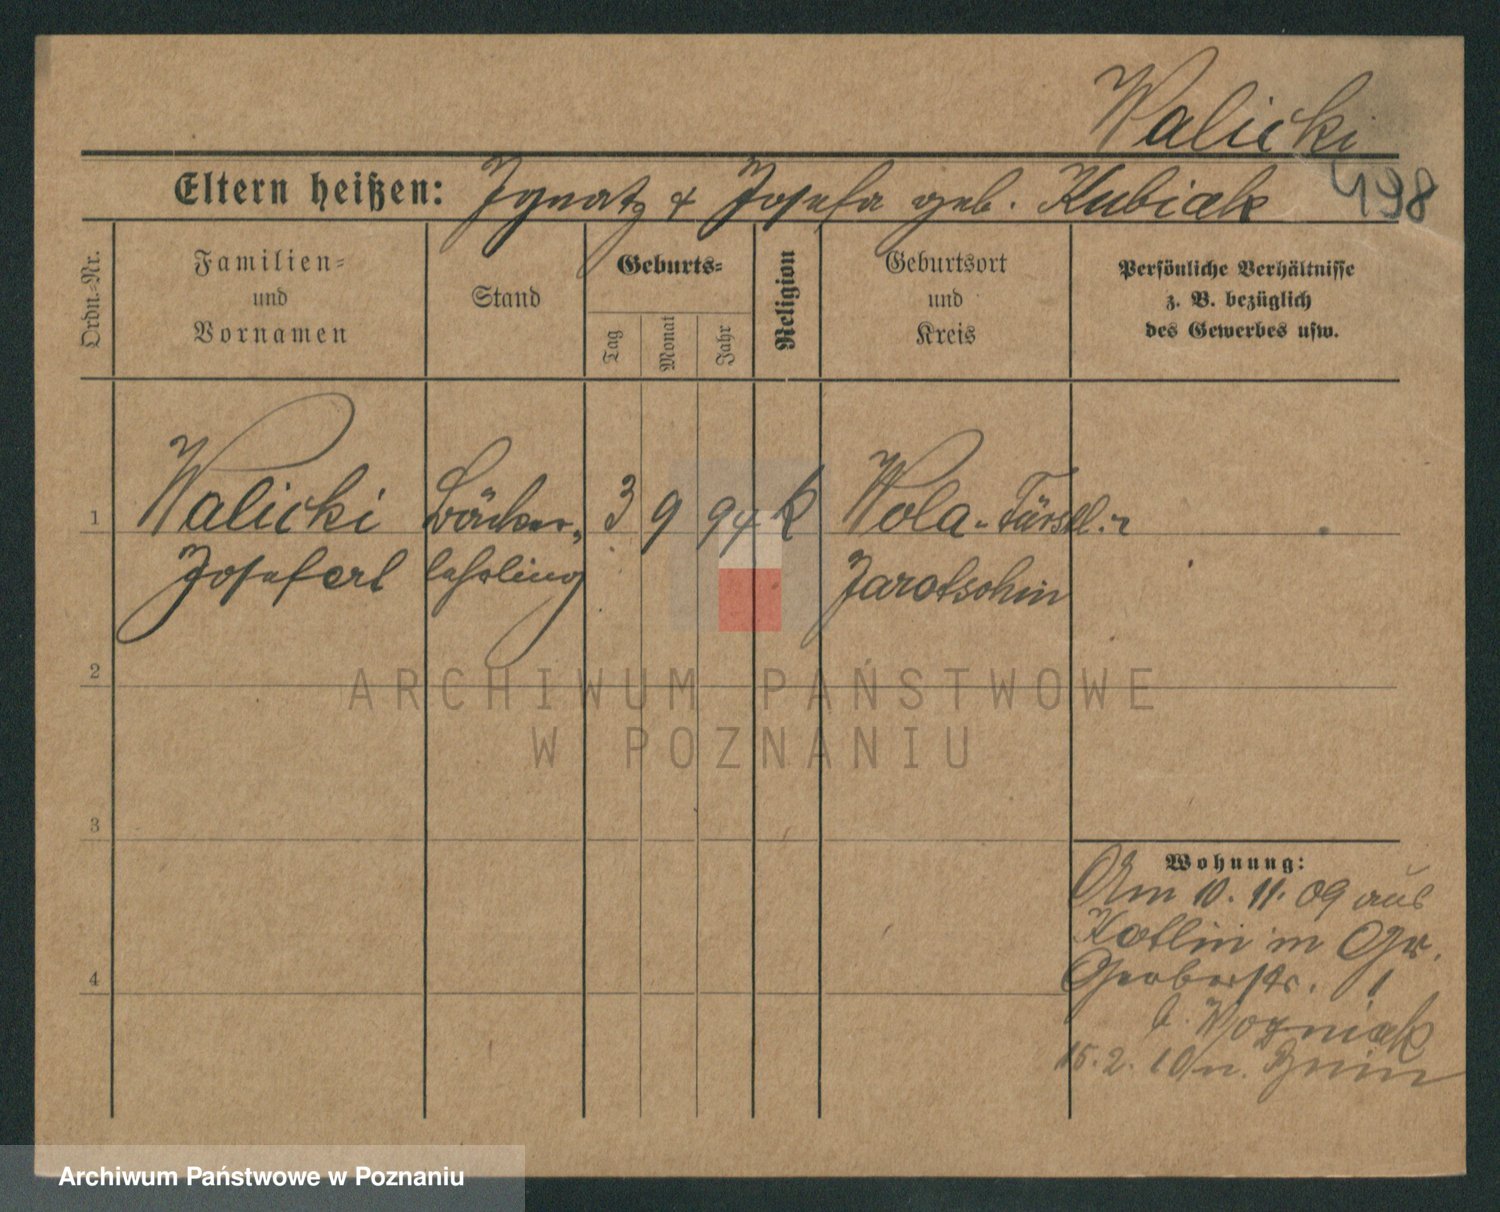 Walicki
498
Eltern heißen: Ignatz & Josefa geb. Kubiak
Ordn.-Nr.
Familien-
und
Vornamen
Stand
Geburts-
Tag
Monat
Jahr
Religion
Geburtsort
und
Kreis
Persönliche Verhältnisse
z. B. bezüglich
des Gewerbes usw.
1
Walicki Bäcker- 3 9 94 k Wola-Fürstl.
Josef lehrling Jarotschin
2
ARCHIWUM PAŃSTWOWE
W POZNANIU
3
Wohnung:
Am 10. 11. 09 aus
Kotlin in Gr.
Gerberstr. 1
4
b. Wozniak
15. 2. 10 n. Znin
Archiwum Państwowe w Poznaniu